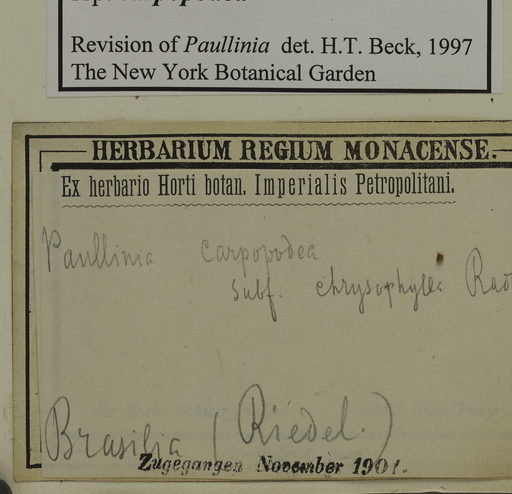 Revision of Paullinia det. H.T. Beck, 1997
The New York Botanical Garden
HERBARIUM REGIUM MONACENSE.
Ex herbario Horti botan. Imperialis Petropolitani.
Paullinia carpopodea
subf. chrysophylla Rad
Brasilia (Riedel.)
Zugegangen November 1901.